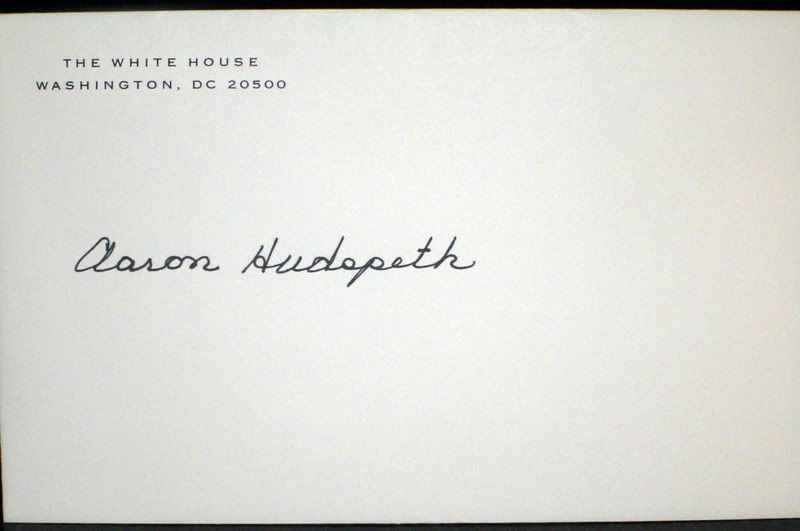 THE WHITE HOUSE
WASHINGTON, DC 20500
Aaron Hudspeth